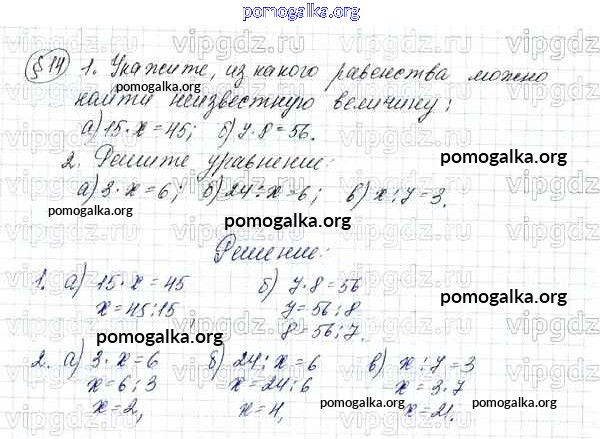 pomogalka.org
§14 1. Укажите, из какого равенства можно
найти неизвестную величину:
а) 15·x=45; б) y·8=56.
2. Решите уравнение:
а) 3·x=6; б) 24:x=6; в) x:7=3.
Решение:
1. а) 15·x=45 б) y·8=56
x=45:15 y=56:8
8=56:7.
2. а) 3·x=6 б) 24:x=6 в) x:7=3
x=6:3 x=24:6 x=3·7
x=2, x=4, x=21.
pomogalka.org
pomogalka.org
pomogalka.org
pomogalka.org
pomogalka.org
pomogalka.org
pomogalka.org
pomogalka.org
pomogalka.org
vipgdz.ru